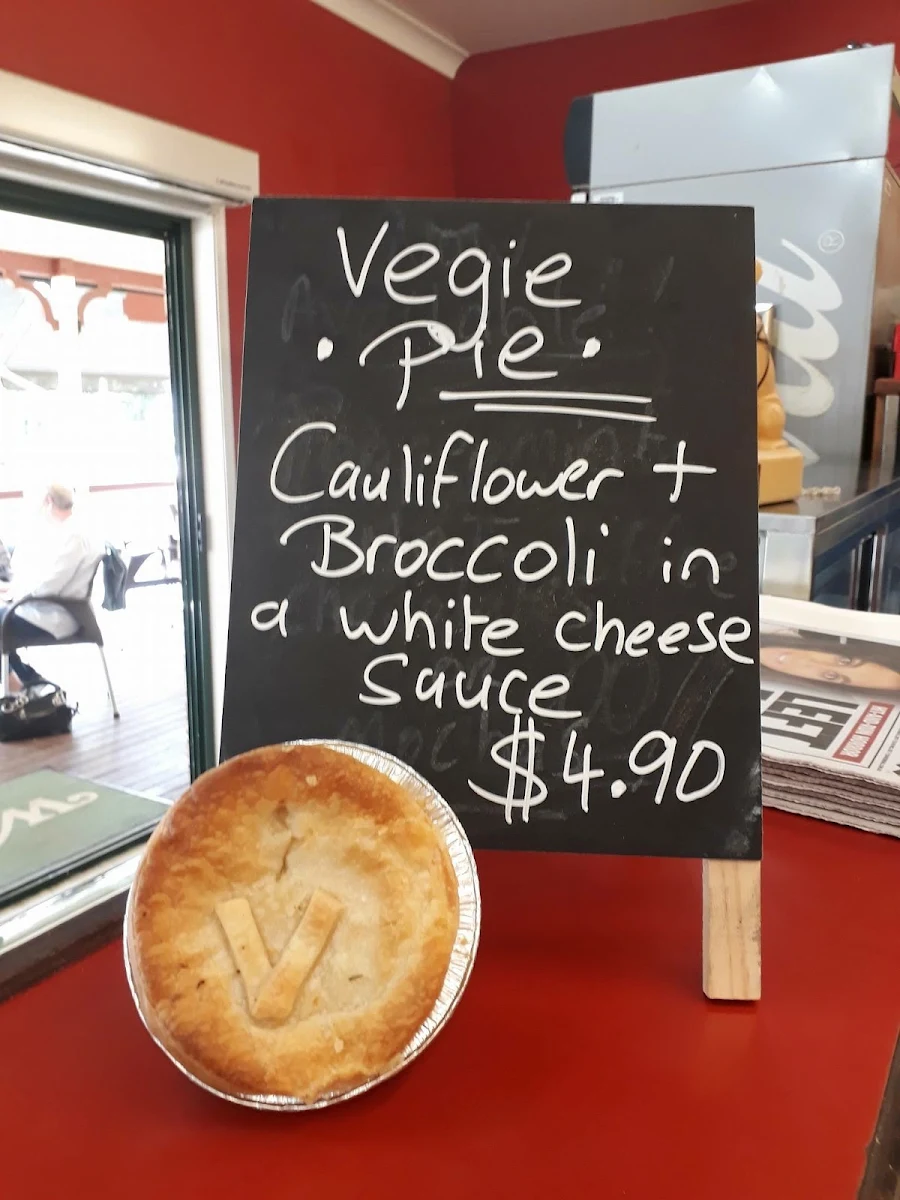 Vegie
. Pie .
Cauliflower +
Broccoli in
a white cheese
sauce
$4.90
V